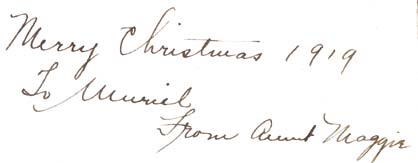 Merry Christmas 1919
To Muriel
From Aunt Maggie